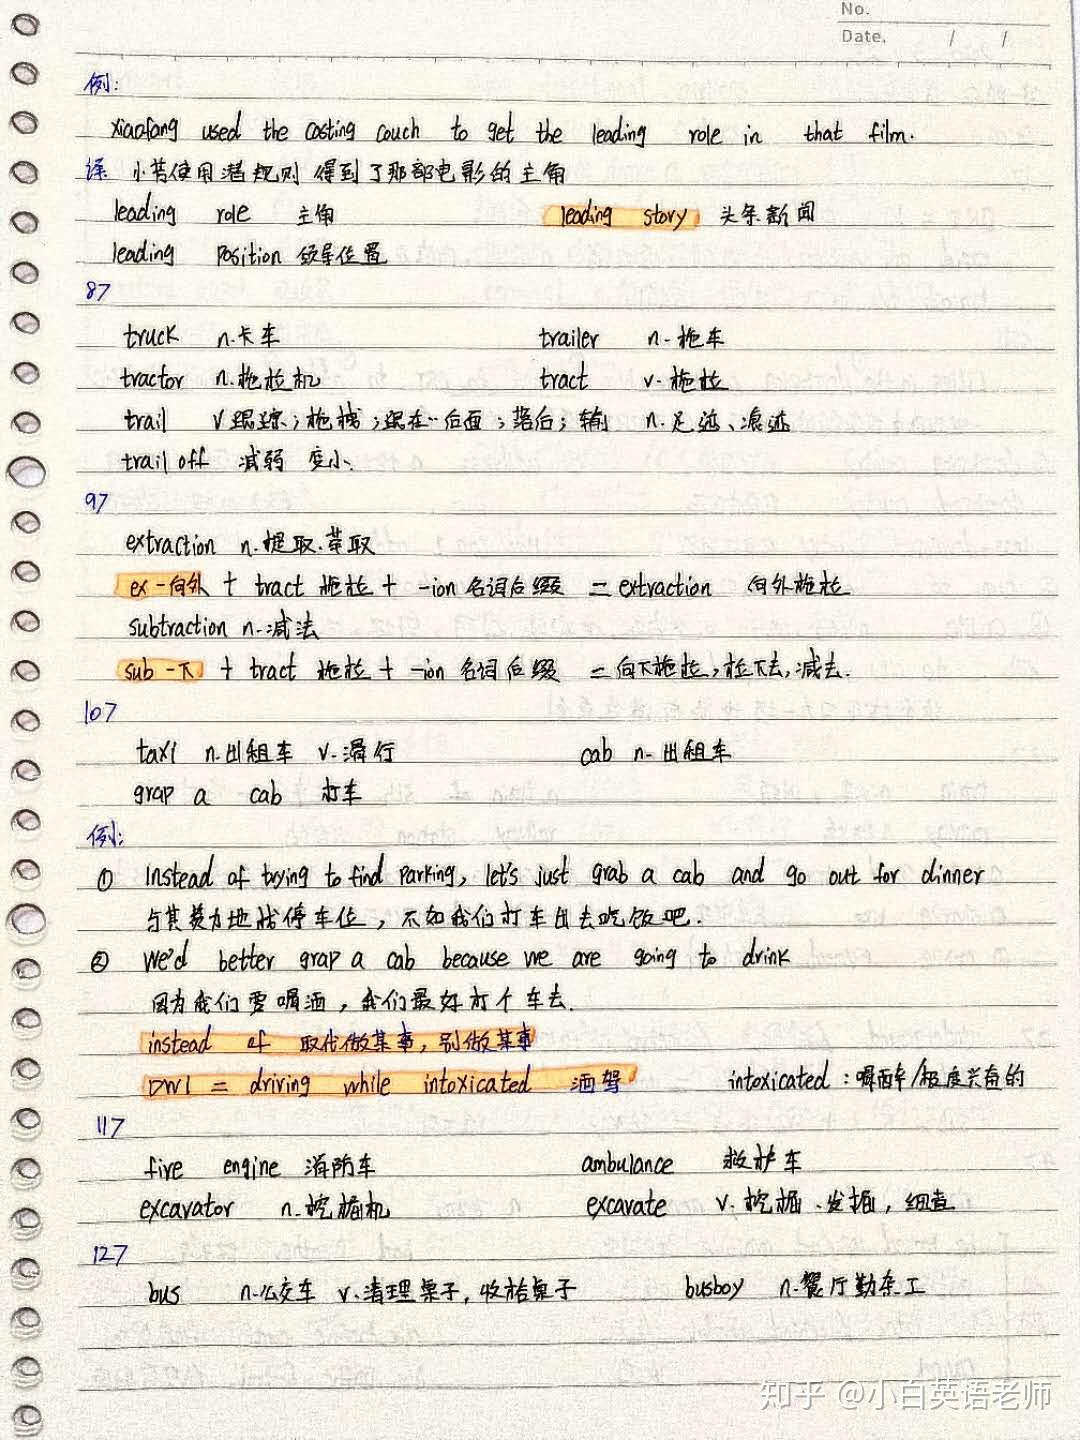 No.
Date. / /
例:
xiaofang used the casting couch to get the leading role in that film.
译 小芳使用潜规则得到了那部电影的主角
leading role 主角 leading story 头条新闻
leading position 领导位置
87
truck n.卡车 trailer n.拖车
tractor n.拖拉机 tract v.拖拉
trail v.跟踪;拖拽;跟在…后面;落后;输 n.足迹、痕迹
trail off 减弱 变小.
97
extraction n.提取.萃取
ex-向外 + tract 拖拉 + -ion 名词后缀 = extraction 向外拖拉
subtraction n.减法
sub-下 + tract 拖拉 + -ion 名词后缀 = 向下拖拉,拉下去,减去.
107
taxi n.出租车 v.滑行 cab n.出租车
grap a cab 打车
例:
① Instead of trying to find parking, let's just grab a cab and go out for dinner
与其费力地找停车位, 不如我们打车出去吃饭吧.
② We'd better grap a cab because we are going to drink
因为我们要喝酒,我们最好打个车去.
instead of 取代做某事,别做某事
DWI = driving while intoxicated 酒驾 intoxicated:喝醉/极度兴奋的
117
fire engine 消防车 ambulance 救护车
excavator n.挖掘机 excavate v.挖掘、发掘,细查
127
bus n.公交车 v.清理桌子,收拾桌子 busboy n.餐厅勤杂工
知乎 @小白英语老师